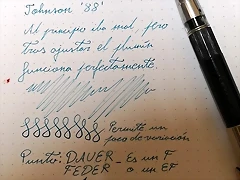 Johnson '88'
Al principio iba mal, pero
tras ajustar el plumín
funciona perfectamente.
Permite un
poco de variación
Punto: DAUER - Es un F
FEDER o un EF